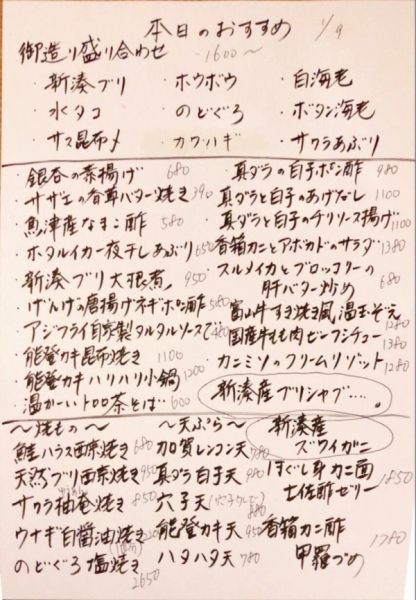 本日のおすすめ 1/9
御造り盛り合わせ 1600〜
・新湊ブリ ・ホウボウ ・白海老
・水ダコ ・のどぐろ ・ボタン海老
・サス昆布〆 ・カワハギ ・サワラあぶり
・銀杏の素揚げ 680
・サザエの香草バター焼き 390
・魚津産なまこ酢 580
・ホタルイカ一夜干しあぶり 650
・新湊ブリ大根煮 950
・げんげの唐揚げネギポン酢 580
・アジフライ自家製タルタルソースで
・能登カキ昆布焼き 1100
・能登カキハリハリ小鍋 1200
・温かーいトロロ茶そば 600
・真ダラの白子ポン酢 980
・真ダラと白子のあげだし 1100
・真ダラと白子のチリソース揚げ 1100
・香箱カニとアボカドのサラダ 1380
・スルメイカとブロッコリーの
肝バター炒め 680
・富山牛すき焼き風 温玉ぞえ 1280
・国産牛もも肉ビーフシチュー 1380
・カニミソのクリームリゾット 1280
新湊産ブリシャブ....。
〜焼もの〜
鮭ハラス西京焼き 680
天然ブリ西京焼き 950
サワラ柚庵焼き 850
ウナギ白醤油焼き
のどぐろ塩焼き 2650
〜天ぷら〜
加賀レンコン天 780
真ダラ白子天 980
穴子天 880
能登カキ天 950
ハタハタ天 780
新湊産
ズワイガニ
ほぐし身カニ面
土佐酢ゼリー 1850
香箱カニ酢
甲羅づめ 1780